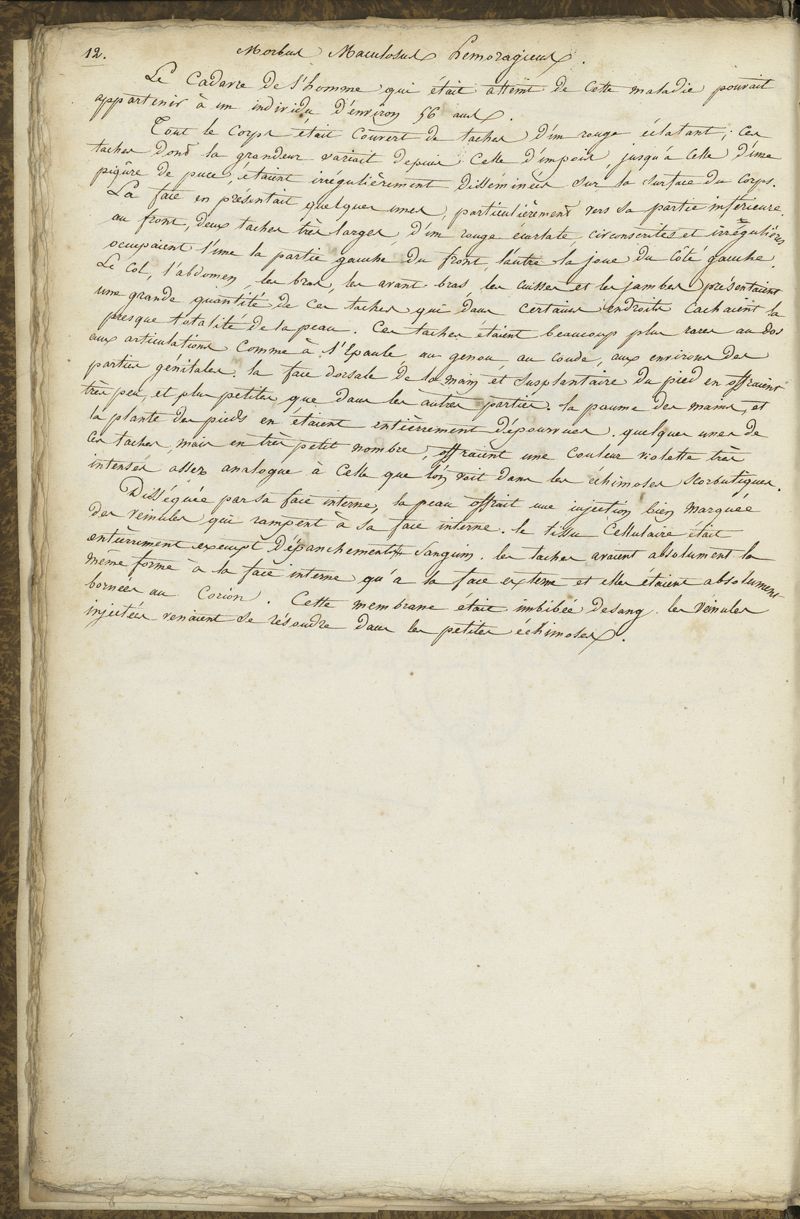 12. Morbus Maculosus hemoragicus.
Le Cadavre de l'homme qui était atteint de cette maladie pouvait
appartenir à un individu d'environ 56 ans.
Tout le corps était couvert de taches d'un rouge éclatant; ces
taches dont la grandeur variait depuis celle d'un pois, jusqu'à celle d'une
piqûre de puce, étaient irrégulièrement disséminées sur la surface du corps.
La face en présentait quelques unes, particulièrement vers sa partie inférieure.
au front, deux taches très larges d'un rouge écarlate circonscrites et irrégulières
occupaient l'une la partie gauche du front, l'autre la joue du côté gauche.
Le col, l'abdomen, les bras, les avant bras, les cuisses et les jambes présentaient
une grande quantité de ces taches qui dans certains endroits cachaient la
presque totalité de la peau. Ces taches étaient beaucoup plus rares au dos
aux articulations comme à l'Epaule, au genou au coude, aux environs des
parties génitales. la face dorsale de la main et susplantaire du pied en offraient
très peu, et plus petites que dans les autres parties. la paume des mains, et
la plante des pieds en étaient entièrement dépourvues. quelques unes de
ces taches, mais en très petit nombre, offraient une couleur violette très
intense, assez analogue à celle que l'on voit dans les échimoses scorbutiques.
Disséquée par sa face interne, la peau offrait une injection bien marquée
des veinules qui rampent à sa face interne. le tissu Cellulaire était
entièrement exempt d'épanchement Sanguin. les taches avaient absolument la
même forme à la face interne qu'à la face externe et elles étaient absolument
bornées au Corion. Cette membrane était imbibée de sang. les veinules
injectées venaient se résoudre dans les petites échimoses.